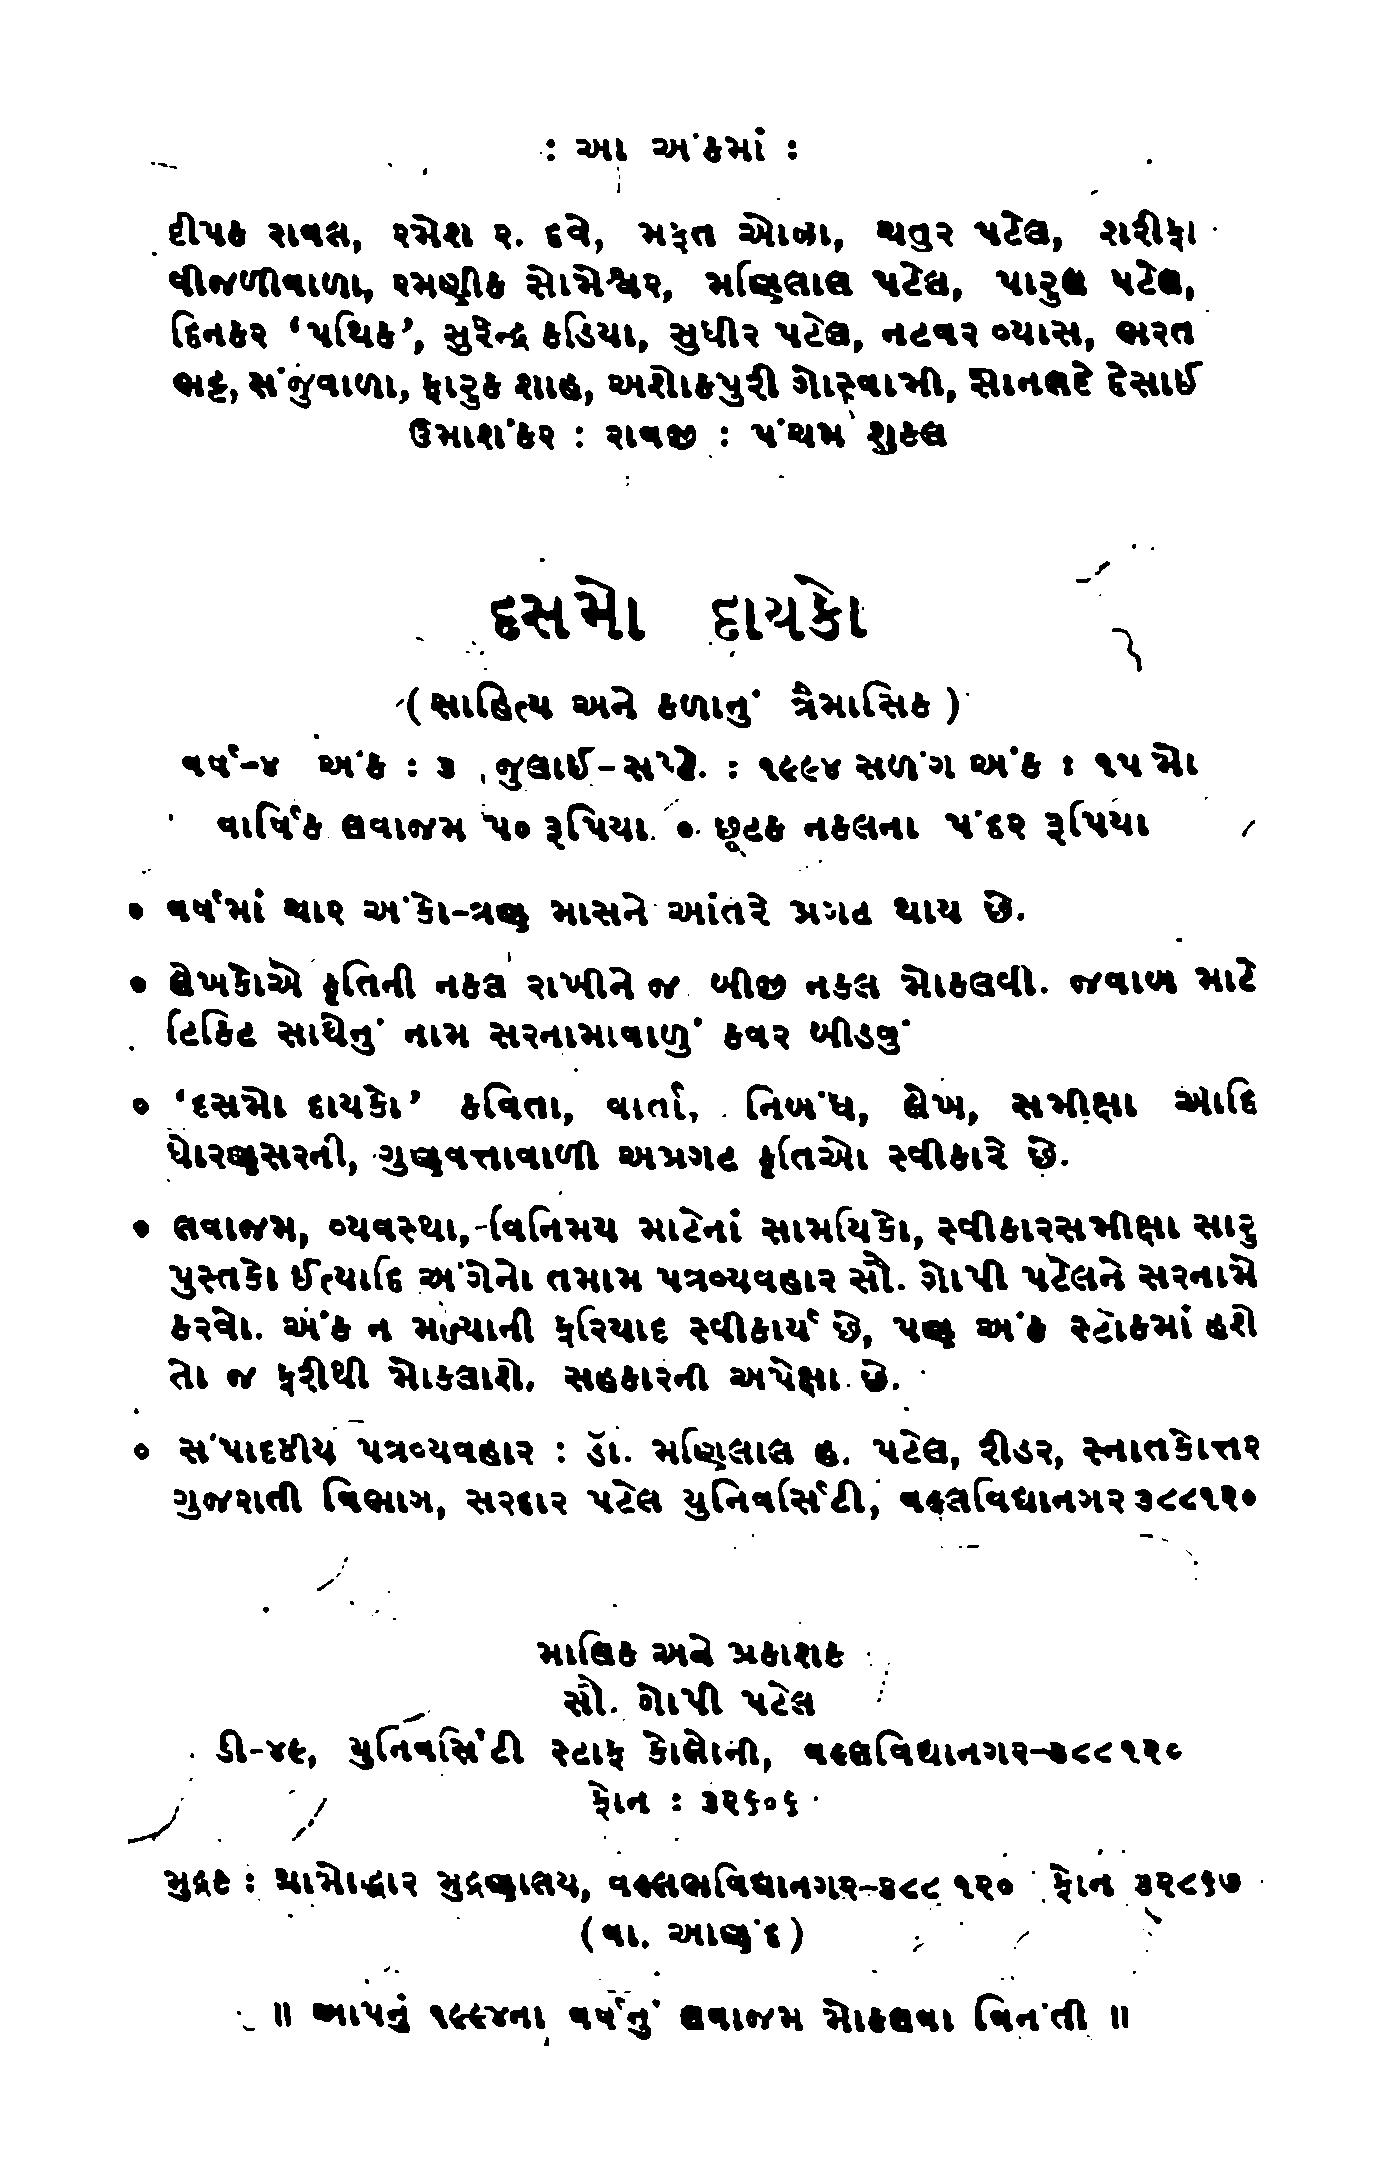 : આ અંકમાં :
દીપક રાવલ, રમેશ ર. દવે, મફત ઓઝા, ચતુર પટેલ, શરીફા
વીજળીવાળા, રમણીક સોમેશ્વર, મણિલાલ પટેલ, પારુલ પટેલ,
દિનકર ‘પથિક’, સુરેન્દ્ર કડિયા, સુધીર પટેલ, નટવર વ્યાસ, ભરત
ભટ્ટ, સંજુવાળા, ફારુક શાહ, અશોકપુરી ગોસ્વામી, સોનલદે દેસાઈ
ઉમાશંકર : રાવજી : પંચમ શુકલ
દસમો દાયકો
( સાહિત્ય અને કળાનું ત્રૈમાસિક )
વર્ષ-૪ અંક : ૩ જુલાઈ-સપ્ટે. : ૧૯૯૪ સળંગ અંક : ૧૫ મો
વાર્ષિક લવાજમ ૫૦ રૂપિયા. ● છૂટક નકલના પંદર રૂપિયા
● વર્ષમાં ચાર અંકો-ત્રણ માસને આંતરે પ્રગટ થાય છે.
● લેખકોએ કૃતિની નકલ રાખીને જ બીજી નકલ મોકલવી. જવાબ માટે
ટિકિટ સાથેનું નામ સરનામાવાળું કવર બીડવું
○ ‘દસમો દાયકો’ કવિતા, વાર્તા, નિબંધ, લેખ, સમીક્ષા આદિ
ધોરણસરની, ગુણવત્તાવાળી અપ્રગટ કૃતિઓ સ્વીકારે છે.
● લવાજમ, વ્યવસ્થા, વિનિમય માટેનાં સામયિકો, સ્વીકારસમીક્ષા સારુ
પુસ્તકો ઈત્યાદિ અંગેનો તમામ પત્રવ્યવહાર સૌ. ગોપી પટેલને સરનામે
કરવો. અંક ન મળ્યાની ફરિયાદ સ્વીકાર્ય છે, પણ અંક સ્ટોકમાં હશે
તો જ ફરીથી મોકલાશે. સહકારની અપેક્ષા છે.
○ સંપાદકીય પત્રવ્યવહાર : ડૉ. મણિલાલ હ. પટેલ, રીડર, સ્નાતકોત્તર
ગુજરાતી વિભાગ, સરદાર પટેલ યુનિવર્સિટી, વલ્લભવિદ્યાનગર ૩૮૮૧૨૦
માલિક અને પ્રકાશક
સૌ. ગોપી પટેલ
ડી-૪૯, યુનિવર્સિટી સ્ટાફ કોલોની, વલ્લભવિદ્યાનગર-૩૮૮૧૨૦
ફોન : ૩૨૬૦૬
મુદ્રક : ગ્રામોદ્ધાર મુદ્રણાલય, વલ્લભવિદ્યાનગર-૩૮૮ ૧૨૦ ફોન ૩૨૮૬૭
(વા. આણંદ)
॥ આપનું ૧૯૯૪ના વર્ષનું લવાજમ મોકલવા વિનંતી ॥